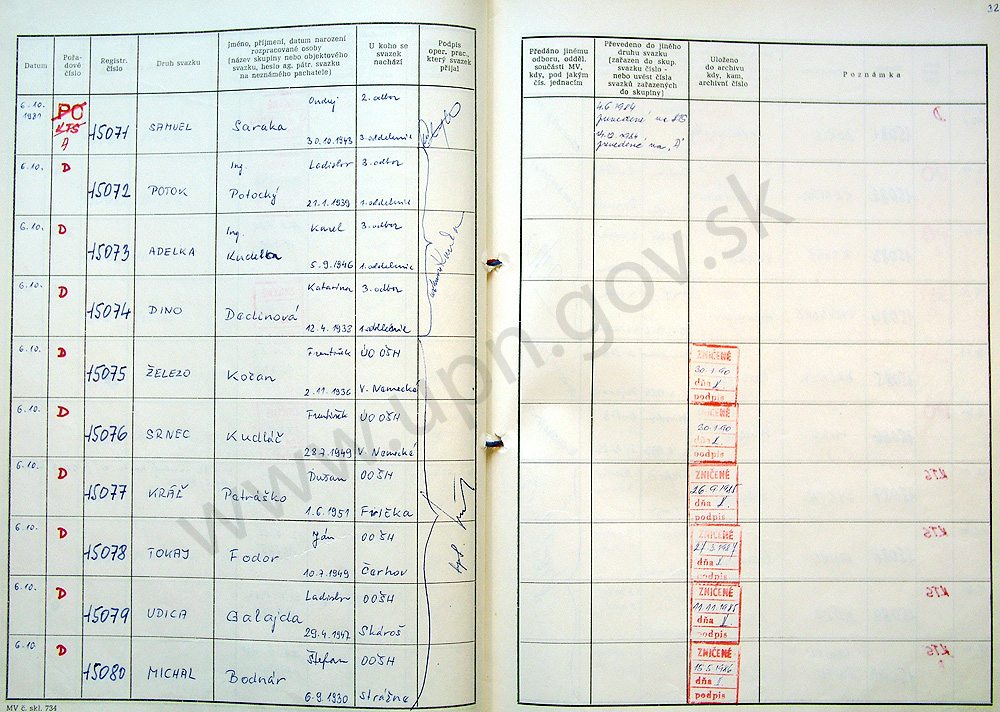 32
Datum
Pořa-
dové
číslo
Registr.
číslo
Druh svazku
Jméno, příjmení, datum narození
rozpracované osoby
(název skupiny nebo objektového
svazku, heslo ag. pátr. svazku
na neznámého pachatele)
U koho se
svazek
nachází
Podpis
oper. prac.,
který svazek
přijal
Předáno jinému
odboru, odděl.
součásti MV,
kdy, pod jakým
čís. jednacím
Převedeno do jiného
druhu svazku
(zařazen do skup.
svazku číslo -
nebo uvést čísla
svazků zařazených
do skupiny)
Uloženo
do archivu
kdy, kam,
archivní číslo
Poznámka
6.10.
1981
PO
KTS
A
15071
SAMUEL
Ondrej
Saraka
30.10.1943
2. odbor
3. oddelenie
4.6.1984
prevedené na
prevedené na "A"
6.10.
D
15072
POTOK
Ing. Ladislav
Potocký
21.1.1939
3. odbor
1. oddelenie
6.10.
D
15073
ADELKA
Ing. Karel
Kudelka
5.9.1946
3. odbor
1. oddelenie
6.10.
D
15074
DINO
Katarina
Dedinová
12.4.1938
3. odbor
1. oddelenie
6.10.
D
15075
ŽELEZO
František
Kočan
2.11.1936
ÚO OŠH
V. Nemecké
ZNIČENÉ
30.1.90
dňa
podpis
6.10.
D
15076
SRNEC
František
Kudláč
28.7.1949
ÚO OŠH
V. Nemecké
ZNIČENÉ
30.1.90
dňa
podpis
6.10.
D
15077
KRÁĽ
Dušan
Petráško
1.6.1951
OOŠH
Frička
ZNIČENÉ
26.9.1985
dňa
podpis
6.10.
D
15078
TOKAY
Ján
Fodor
10.7.1949
OOŠH
Čerhov
ZNIČENÉ
dňa
podpis
6.10.
D
15079
UDICA
Ladislav
Galajda
29.4.1947
OOŠH
Skároš
ZNIČENÉ
11.11.1985
dňa
podpis
6.10
D
15080
MICHAL
Štefan
Bodnár
6.9.1930
OOŠH
Strážne
ZNIČENÉ
15.5.1986
dňa
podpis
MV č. skl. 734
www.upn.gov.sk